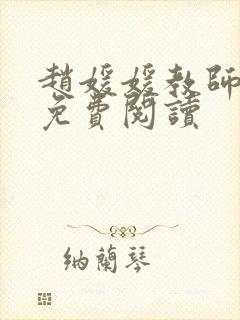 趙媛媛教師
免費閱讀
納蘭琴